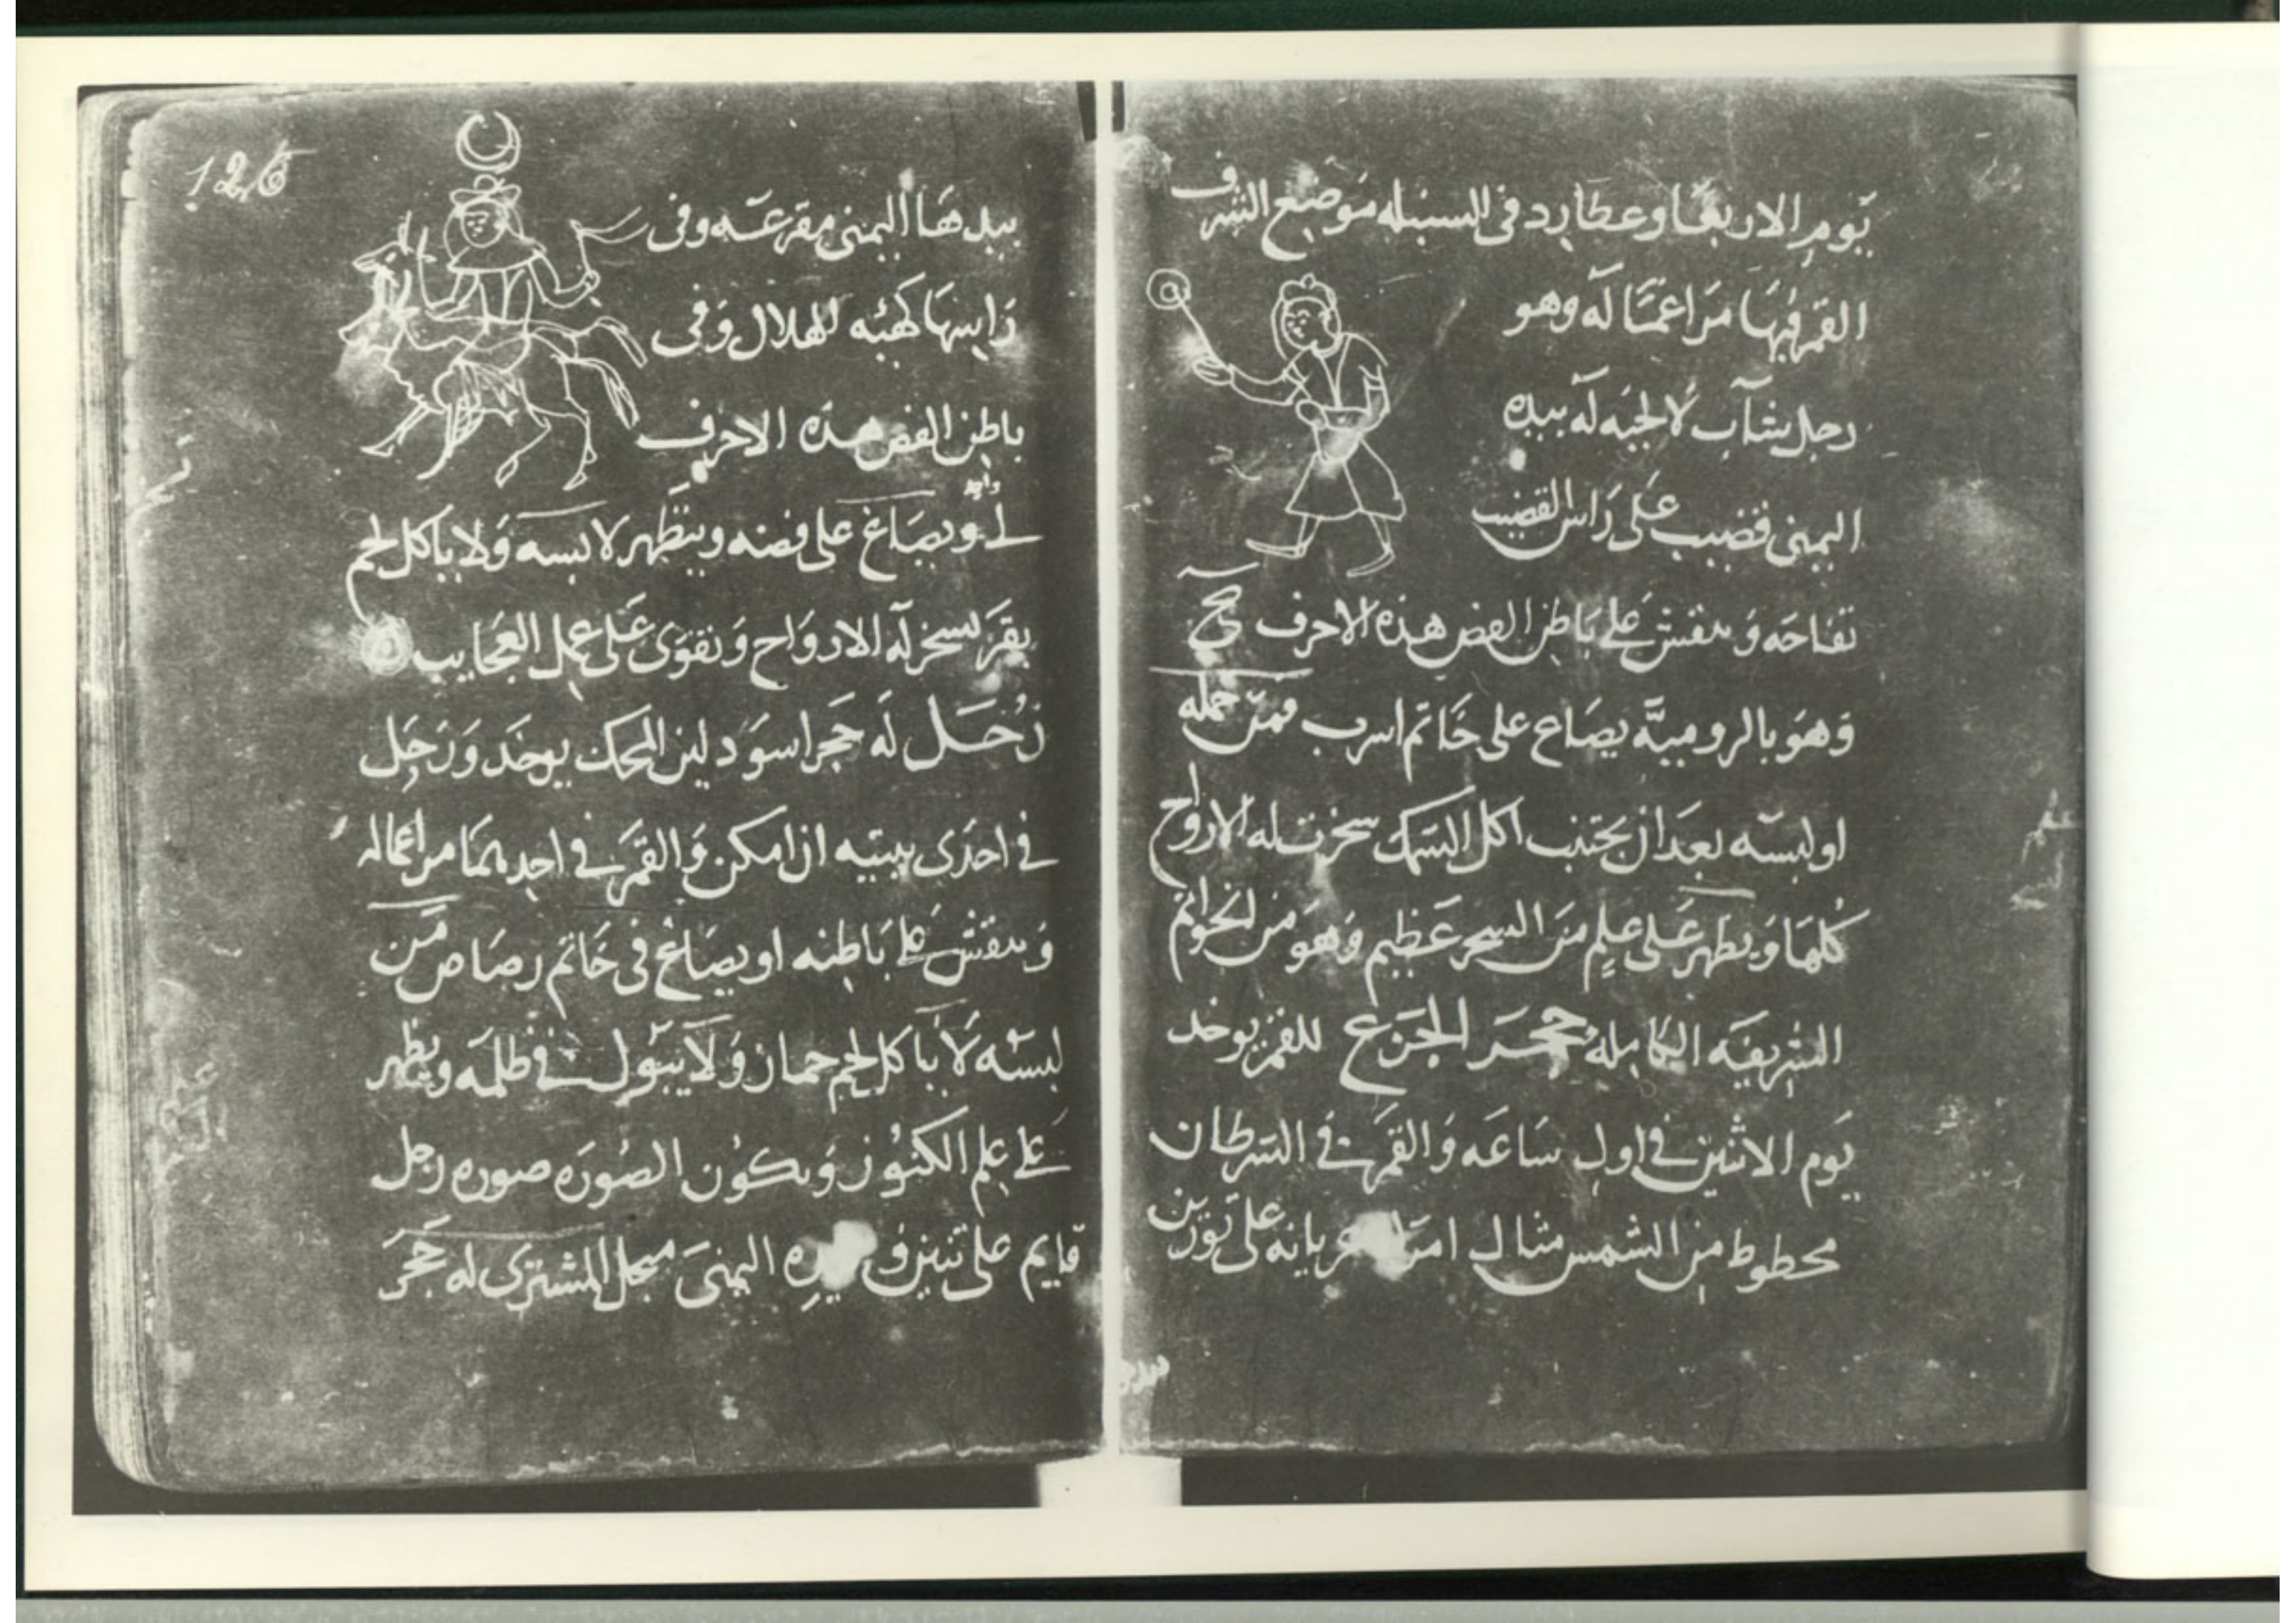 يوم الاربعا وعطارد في السنبله موضع الشرف
القمر فيها مراغما له وهو
رجل شاب لا لحيه له بيده
اليمنى قضيب على راس القضيب
تفاحه وينقش على باطن الفص هذه الاحرف
وهو بالروميه يصاع على خاتم اسرب فمن حمله
او لبسه بعد ان يجتنب اكل السمك سخرت له الارواح
كلها ويظهر على علم من السحر عظيم وهو من الخواتم
الشريفه الكامله حجر الجزع للقمر يوخد
يوم الاثنين في اول ساعه والقمر في السرطان
محطوط من الشمس مثال امراه عريانه على ثورين
126
بيدها اليمنى مقرعه وفى
راسها كهيه الهلال وفى
باطن الفص هذه الاحرف
ويصاغ على فضه ويتطهر لابسه ولا ياكل لحم
بقر يسخر له الارواح ويقوى على عمل العجايب
زحل له حجر اسود لين المحك يوخد وزحل
في احدى بيتيه ان امكن والقمر في احدهما مراغما له
وينقش على باطنه او يصاغ في خاتم رصاص من
لبسه لا ياكل لحم حمار ولا يبول في ظلمه ويظهر
على علم الكنوز ويكون الصوره صوره رجل
قايم على تنين وفى يده اليمنى منجل المشترى له حجر